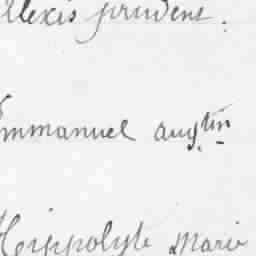 Alexis prudent.
Emmanuel aug.tin
Hippolyte Marie